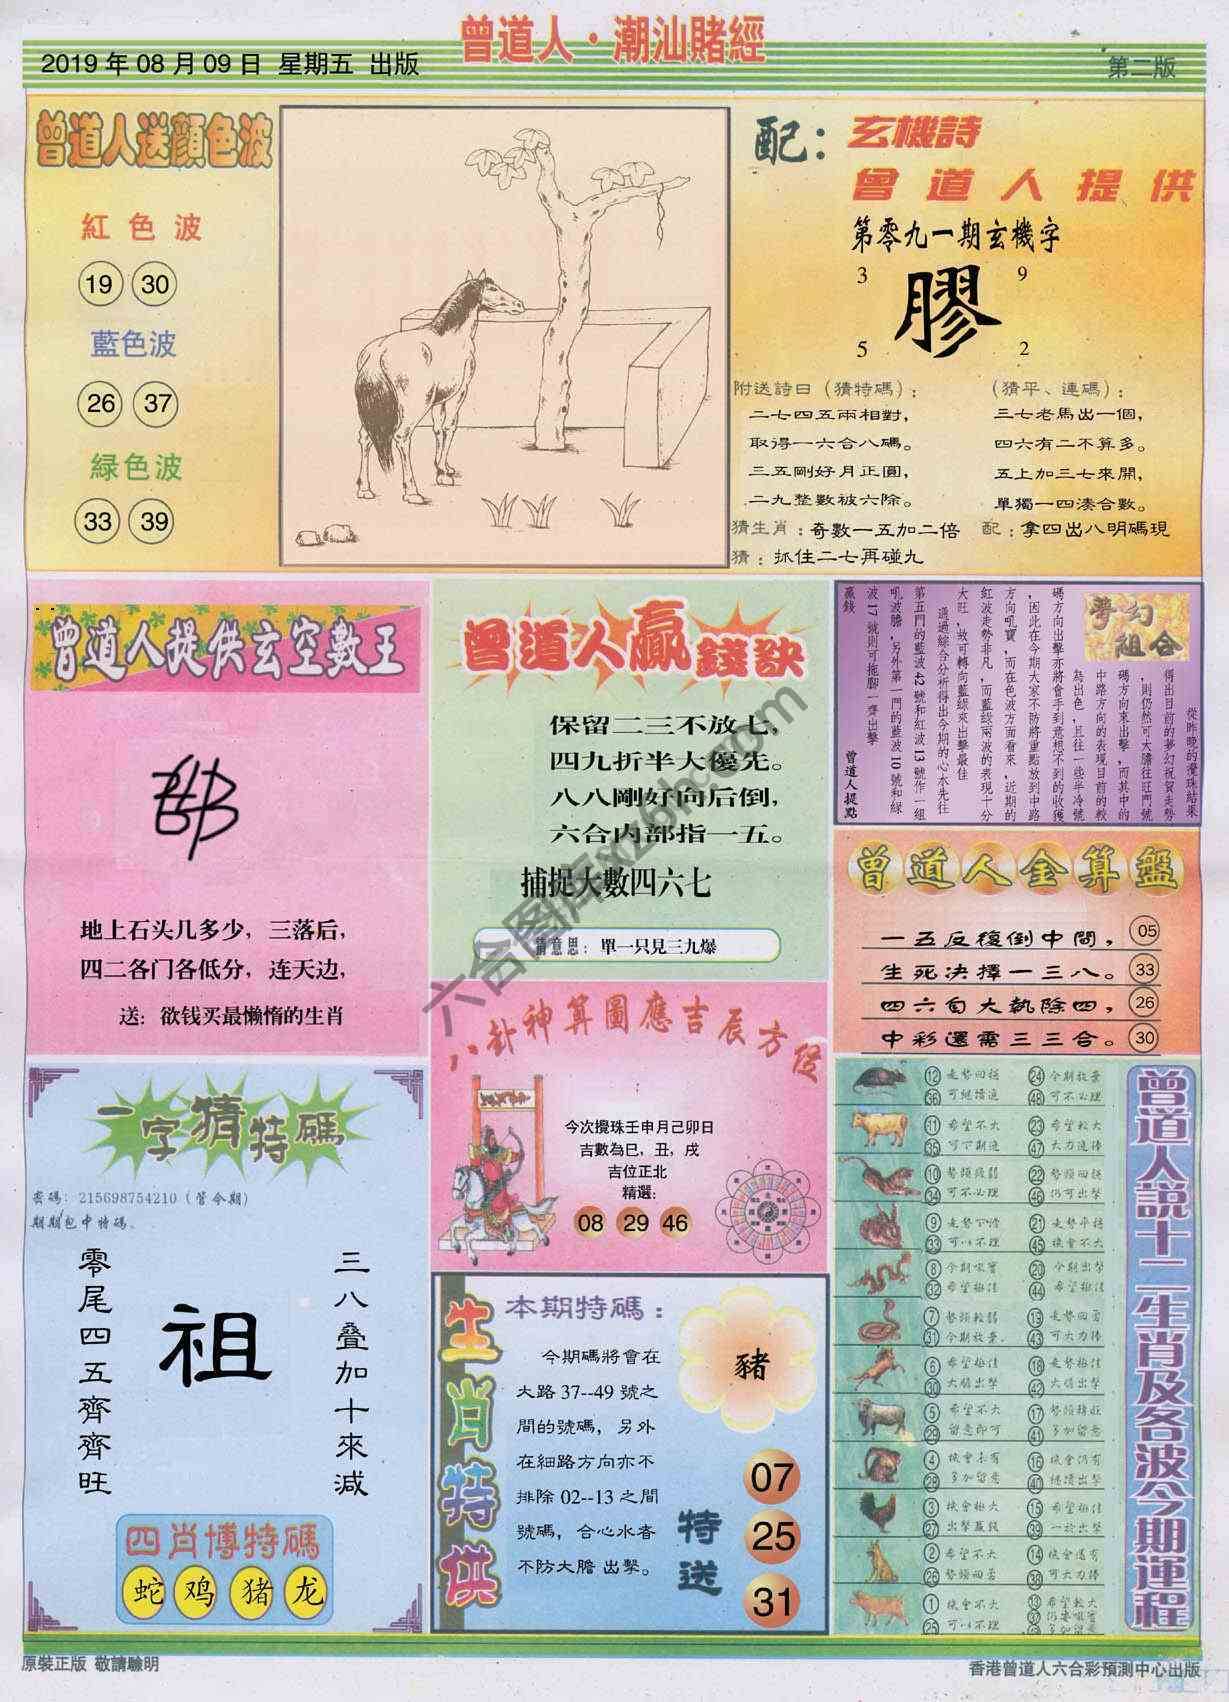 曾道人·潮汕賭經
2019 年 08 月 09 日 星期五 出版
第二版
曾道人送顏色波
紅色波
19 30
藍色波
26 37
緑色波
33 39
配：玄機詩
曾道人提供
第零九一期玄機字
3 9
膠
5 2
附送詩日（猜特碼）：
二七四五兩相對，
取得一六合八碼。
三五剛好月正圓，
二九整數被六除。
（猜平、連碼）：
三七老馬出一個，
四六有二不算多。
五上加三七來開，
單獨一四湊合數。
猜生肖：奇數一五加二倍
配：拿四出八明碼現
猜：抓住二七再碰九
曾道人提供玄空數王
地上石头几多少，三落后，
四二各门各低分，连天边，
送：欲钱买最懒惰的生肖
曾道人贏錢訣
保留二三不放七，
四九折半大優先。
八八剛好向后倒，
六合内部指一五。
捕捉大數四六七
猜意思：單一只見三九爆
夢幻組合
從昨晚的攪珠結果
得出目前的夢幻祝賀走勢
，則仍然可大膽往旺門號
碼方向來出擊，而其中的
中路方向的表現目前的較
為出色，且往一些半冷號
碼方向出擊亦將會手到意想不到的收獲
，因此在今期大家不防將重點放到中路
方向吼寶，而在色波方面看來，近期的
紅波走勢非凡，而藍緑兩波的表現十分
大旺，故可轉向藍緑來出擊最佳
通過綜合分析得出今期的心水先往
第五門的藍波 42 號和紅波 13 號作一組
吼波膽，另外第一門的藍波 10 號和緑
波 17 號則可拖腳一齊出擊
贏錢
曾道人提點
曾道人金算盤
一五反復倒中間，05
生死决擇一三八。33
四六自大執除四，26
中彩還需三三合。30
八卦神算圖應吉辰方位
今次攪珠壬申月己卯日
吉數為巳，丑，戌
吉位正北
精選：
08 29 46
一字猜特碼
密碼：215698754210（管今期）
期期包中特碼。
三八叠加十來減
祖
零尾四五齊齊旺
四肖博特碼
蛇 鸡 猪 龙
生肖特供
本期特碼：
今期碼將會在
大路 37--49 號之
間的號碼，另外
在細路方向亦不
排除 02--13 之間
號碼，合心水者
不防大膽出擊。
豬
特送
07
25
31
曾道人説十二生肖及各波今期運程
12 走勢回穩 24 今期放棄
36 可繼續追 48 可不必理
11 希望不大 23 希望較大
35 可下期追 47 大力追捧
10 勢頭疲弱 22 勢頭回穩
34 可不必理 46 仍可出擊
9 走勢下滑 21 走勢平穩
33 可以不理 45 機會不大
8 今期吼寶 20 今期出擊
32 希望極佳 44 希望極佳
7 勢頭較弱 19 走勢回勇
31 今期放棄 43 可大力捧
6 希望極佳 18 走勢極佳
30 大膽出擊 42 大膽出擊
5 希望不大 17 勢頭轉旺
29 留意即可 41 多加留意
4 機會未有 16 機會仍有
28 多加留意 40 繼續出擊
3 機會極大 15 希望極佳
27 出擊贏錢 39 一於出擊
2 希望不大 14 機會還有
26 勢頭回勇 38 可大力捧
1 機會不大 13 希望較大
25 可以不理 37 仍要吼寶
49 多加留意
原裝正版 敬請驗明
香港曾道人六合彩預測中心出版
六合图库xz6h.com